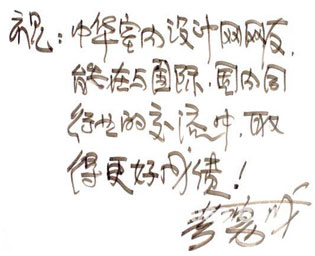 祝：中华室内设计网网友，
能在与国际、国内同
行业的交流中，取
得更好成绩！